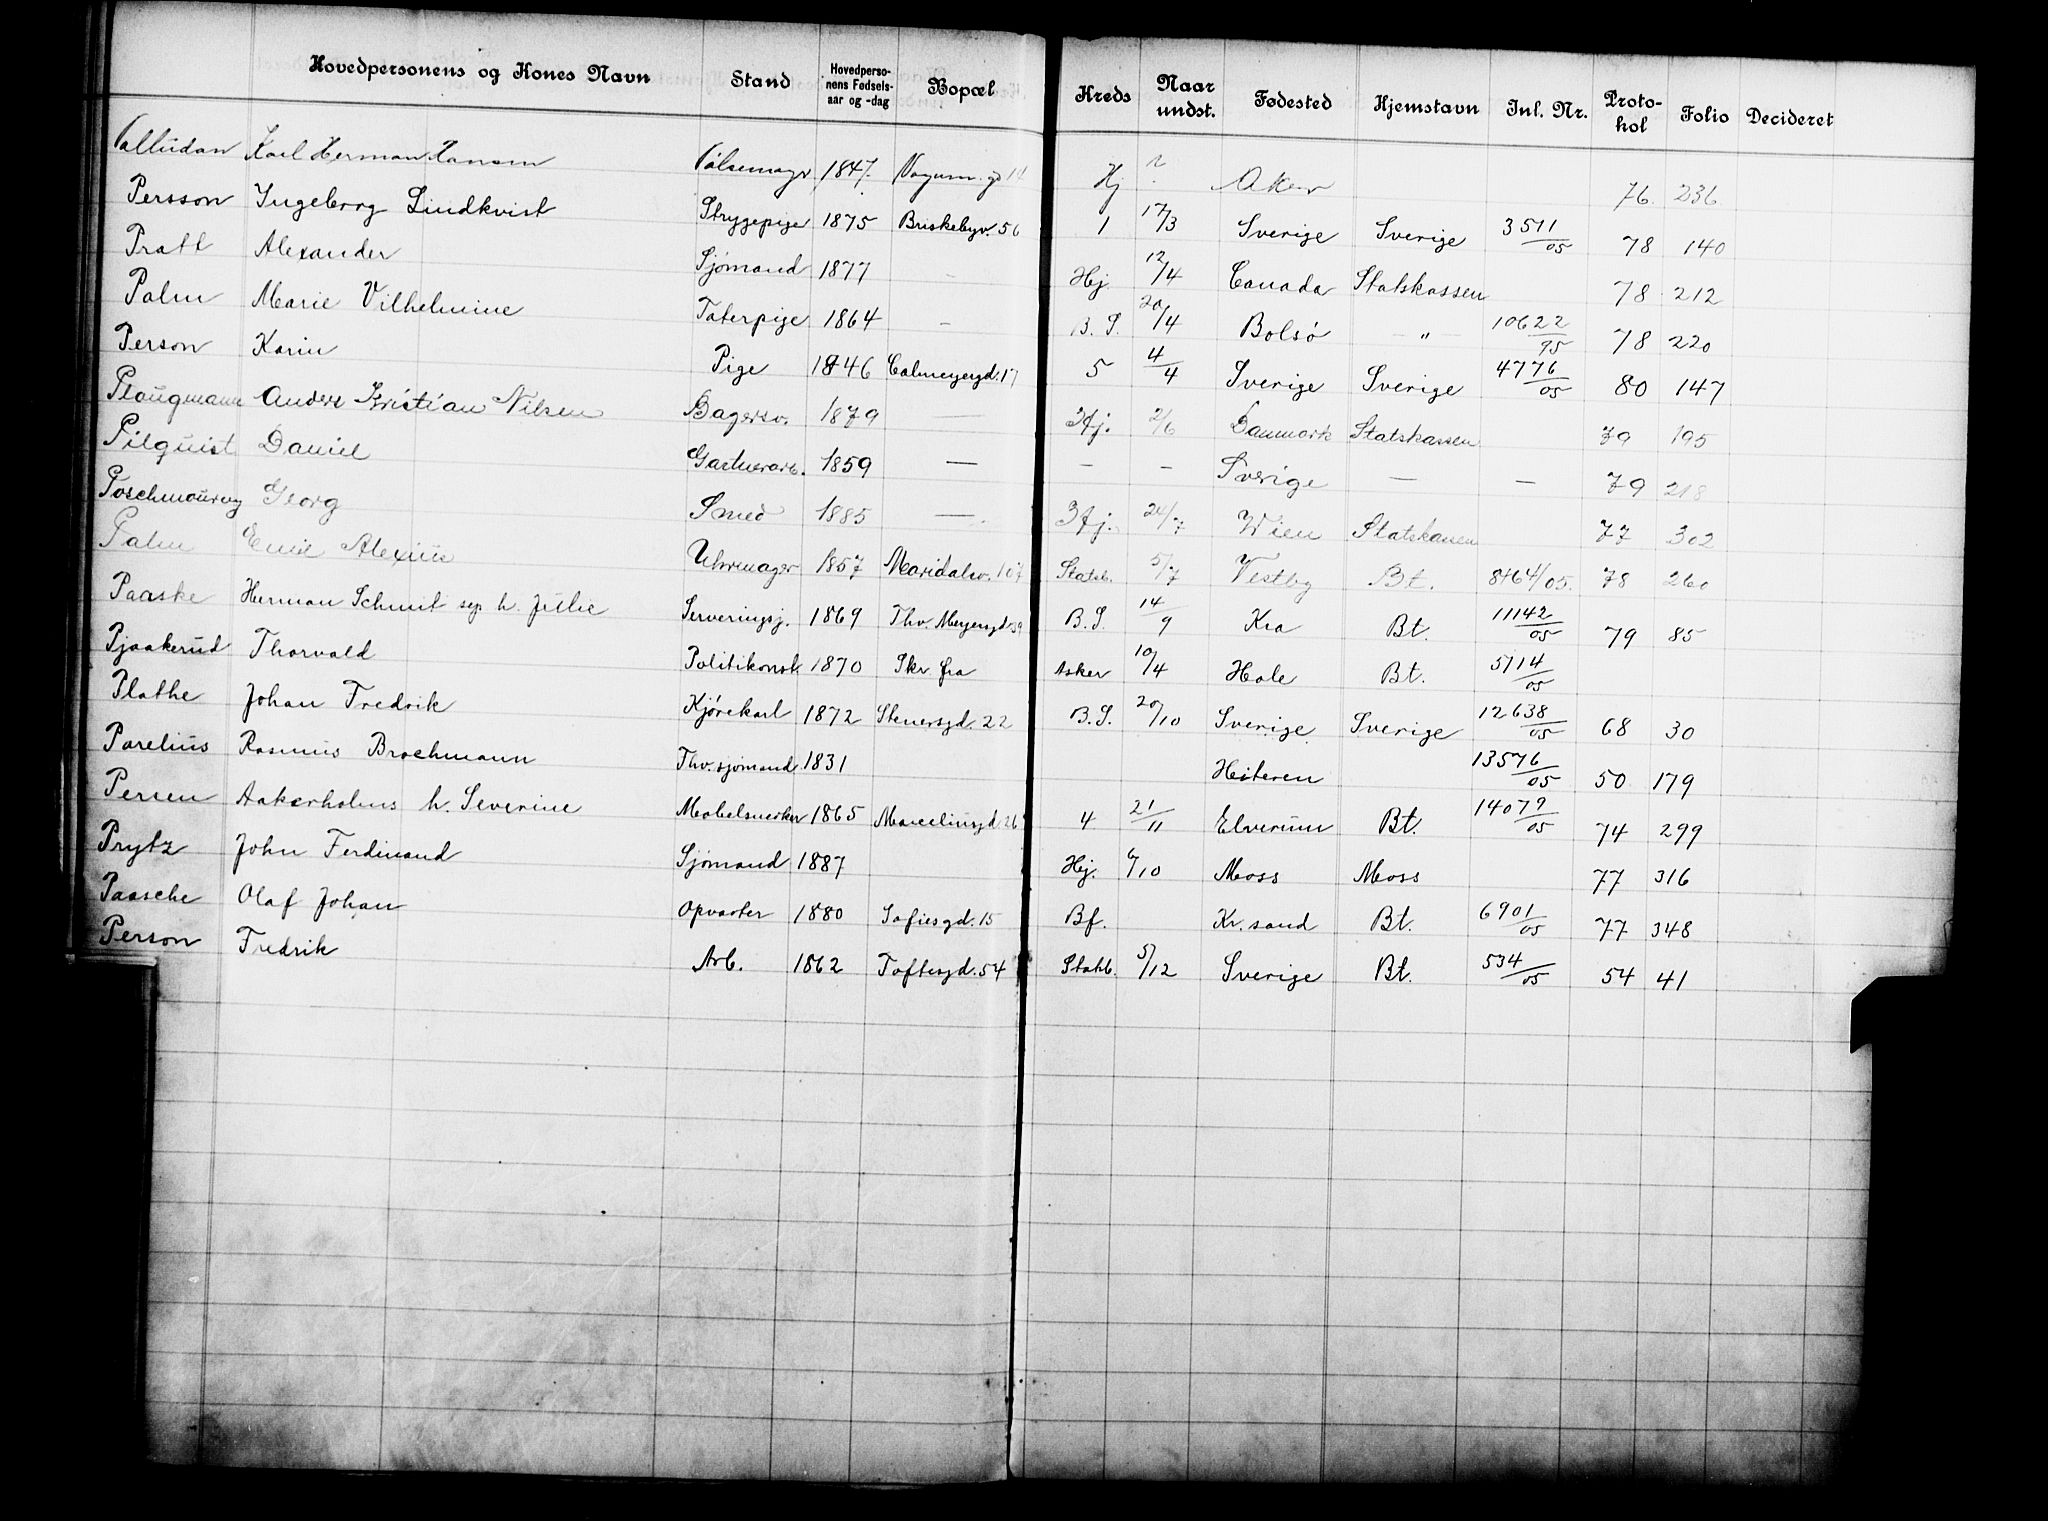 Hovedpersonens og Kones Navn Stand Hovedperso-nens Fødsels-aar og -dag Bopæl Kreds Naar undst. Fødested Hjemstavn Inl. Nr. Proto-kol Folio Decideret
Palludan Karl Herman Hansen Pølsemagr 1847. 11 Hj Aker 76. 236
Persson Ingeborg Lindkvist Strygepige 1875 Briskebyv. 56 1 17/3 Sverige Sverige 3511/05 78 140
Pratt Alexander Sjømand 1877 - Hej 12/4 Canada Statskassen 78 212
Palm Marie Vilhelmine Taterpige 1864 - B. S. 20/4 Bolsø — " — 10622/95 78 220
Person Karin Pige 1846 Calmeyergd. 17 5 4/4 Sverige Sverige 4776/05 80 147
Plougmann Anders Kristian Nilsen Bagersv. 1879 — Hj. 2/6 Danmark Statskassen 79 195
Pilquist Daniel Gartnerarb. 1859 — - - Sverige — — 79 218
Georg Smed 1885 — Hj. 24/7 Wien Statskassen 77 302
Palm Emil Alexius Uhrmager 1857 Maridalsv. 107 Statsb. 5/7 Vestby Bt. 8464/05. 78 260
Paaske Herman Schmit sep. h. Julie Serveringsj. 1869 Thv. Meyersgd. 39 B. S. 14/9 Kra Bt. 11142/05 79 85
Pjaakerud Thorvald Politikonst 1870 Skr. fra Asker 10/4 Hole Bt. 5714/05
Plathe Johan Fredrik Kjørekarl 1872 Stenersgd. 22 B. S. 20/10 Sverige Sverige 12638/05 68 30
Parelius Rasmus Brochmann Fhv. sjømand 1831 Hitteren 13576/05 50 179
Persen Aakerholms h. Severine Møbelsnerker 1865 Marcelinsgd. 26 4 21/11 Elverum Bt. 14079/05 74 299
Prytz John Ferdinand Sjømand 1887 Hej. 6/10 Moss Moss 77 316
Paasche Olaf Johan Opvarter 1880 Sofiesgd. 15 Bf. Kr. sand Bt. 6901/05 77 348
Person Fredrik Arb. 1862 Toftesgd. 54 Statsb. 5/12 Sverige Bt. 534/05 54 41